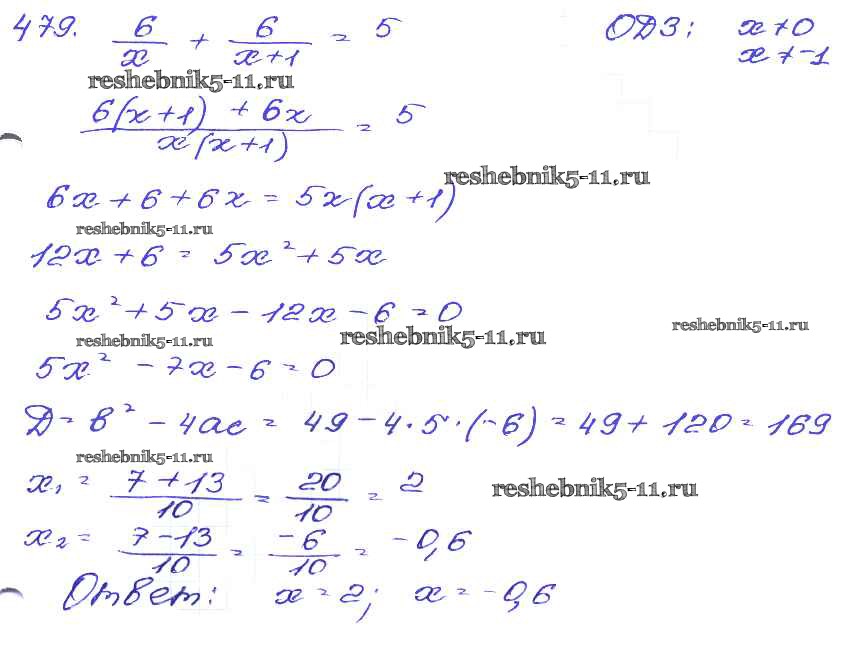 479. 6/x + 6/(x+1) = 5 ОДЗ: x ≠ 0
x ≠ -1
reshebnik5-11.ru
(6(x+1) + 6x)/(x(x+1)) = 5
reshebnik5-11.ru
6x + 6 + 6x = 5x(x+1)
reshebnik5-11.ru
12x + 6 = 5x² + 5x
5x² + 5x - 12x - 6 = 0
reshebnik5-11.ru
reshebnik5-11.ru reshebnik5-11.ru
5x² - 7x - 6 = 0
Д = в² - 4ac = 49 - 4·5·(-6) = 49 + 120 = 169
reshebnik5-11.ru
x₁ = (7+13)/10 = 20/10 = 2
reshebnik5-11.ru
x₂ = (7-13)/10 = -6/10 = -0,6
Ответ: x = 2; x = -0,6